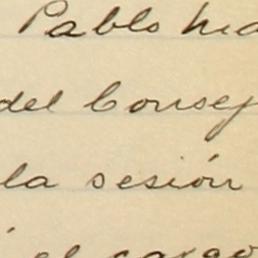 Pablo Ma
del Consej
la sesión
el cargo